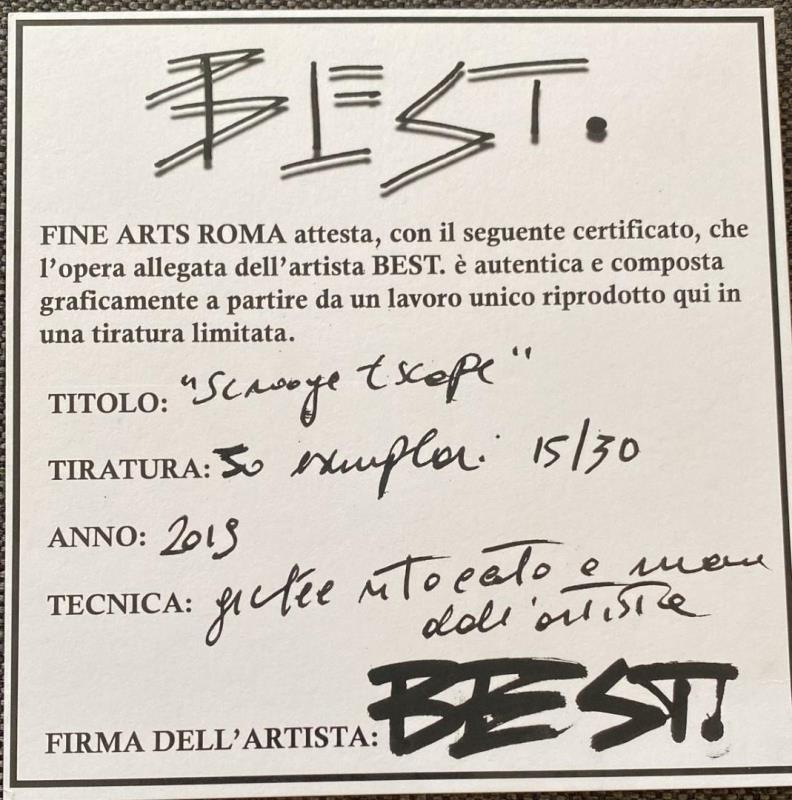 BEST.
FINE ARTS ROMA attesta, con il seguente certificato, che
l'opera allegata dell'artista BEST. è autentica e composta
graficamente a partire da un lavoro unico riprodotto qui in
una tiratura limitata.
TITOLO: "Scrooge Escape"
TIRATURA: 30 esemplari 15/30
ANNO: 2019
TECNICA: giclée ritoccato a mano
dall'artista
FIRMA DELL'ARTISTA: BEST.